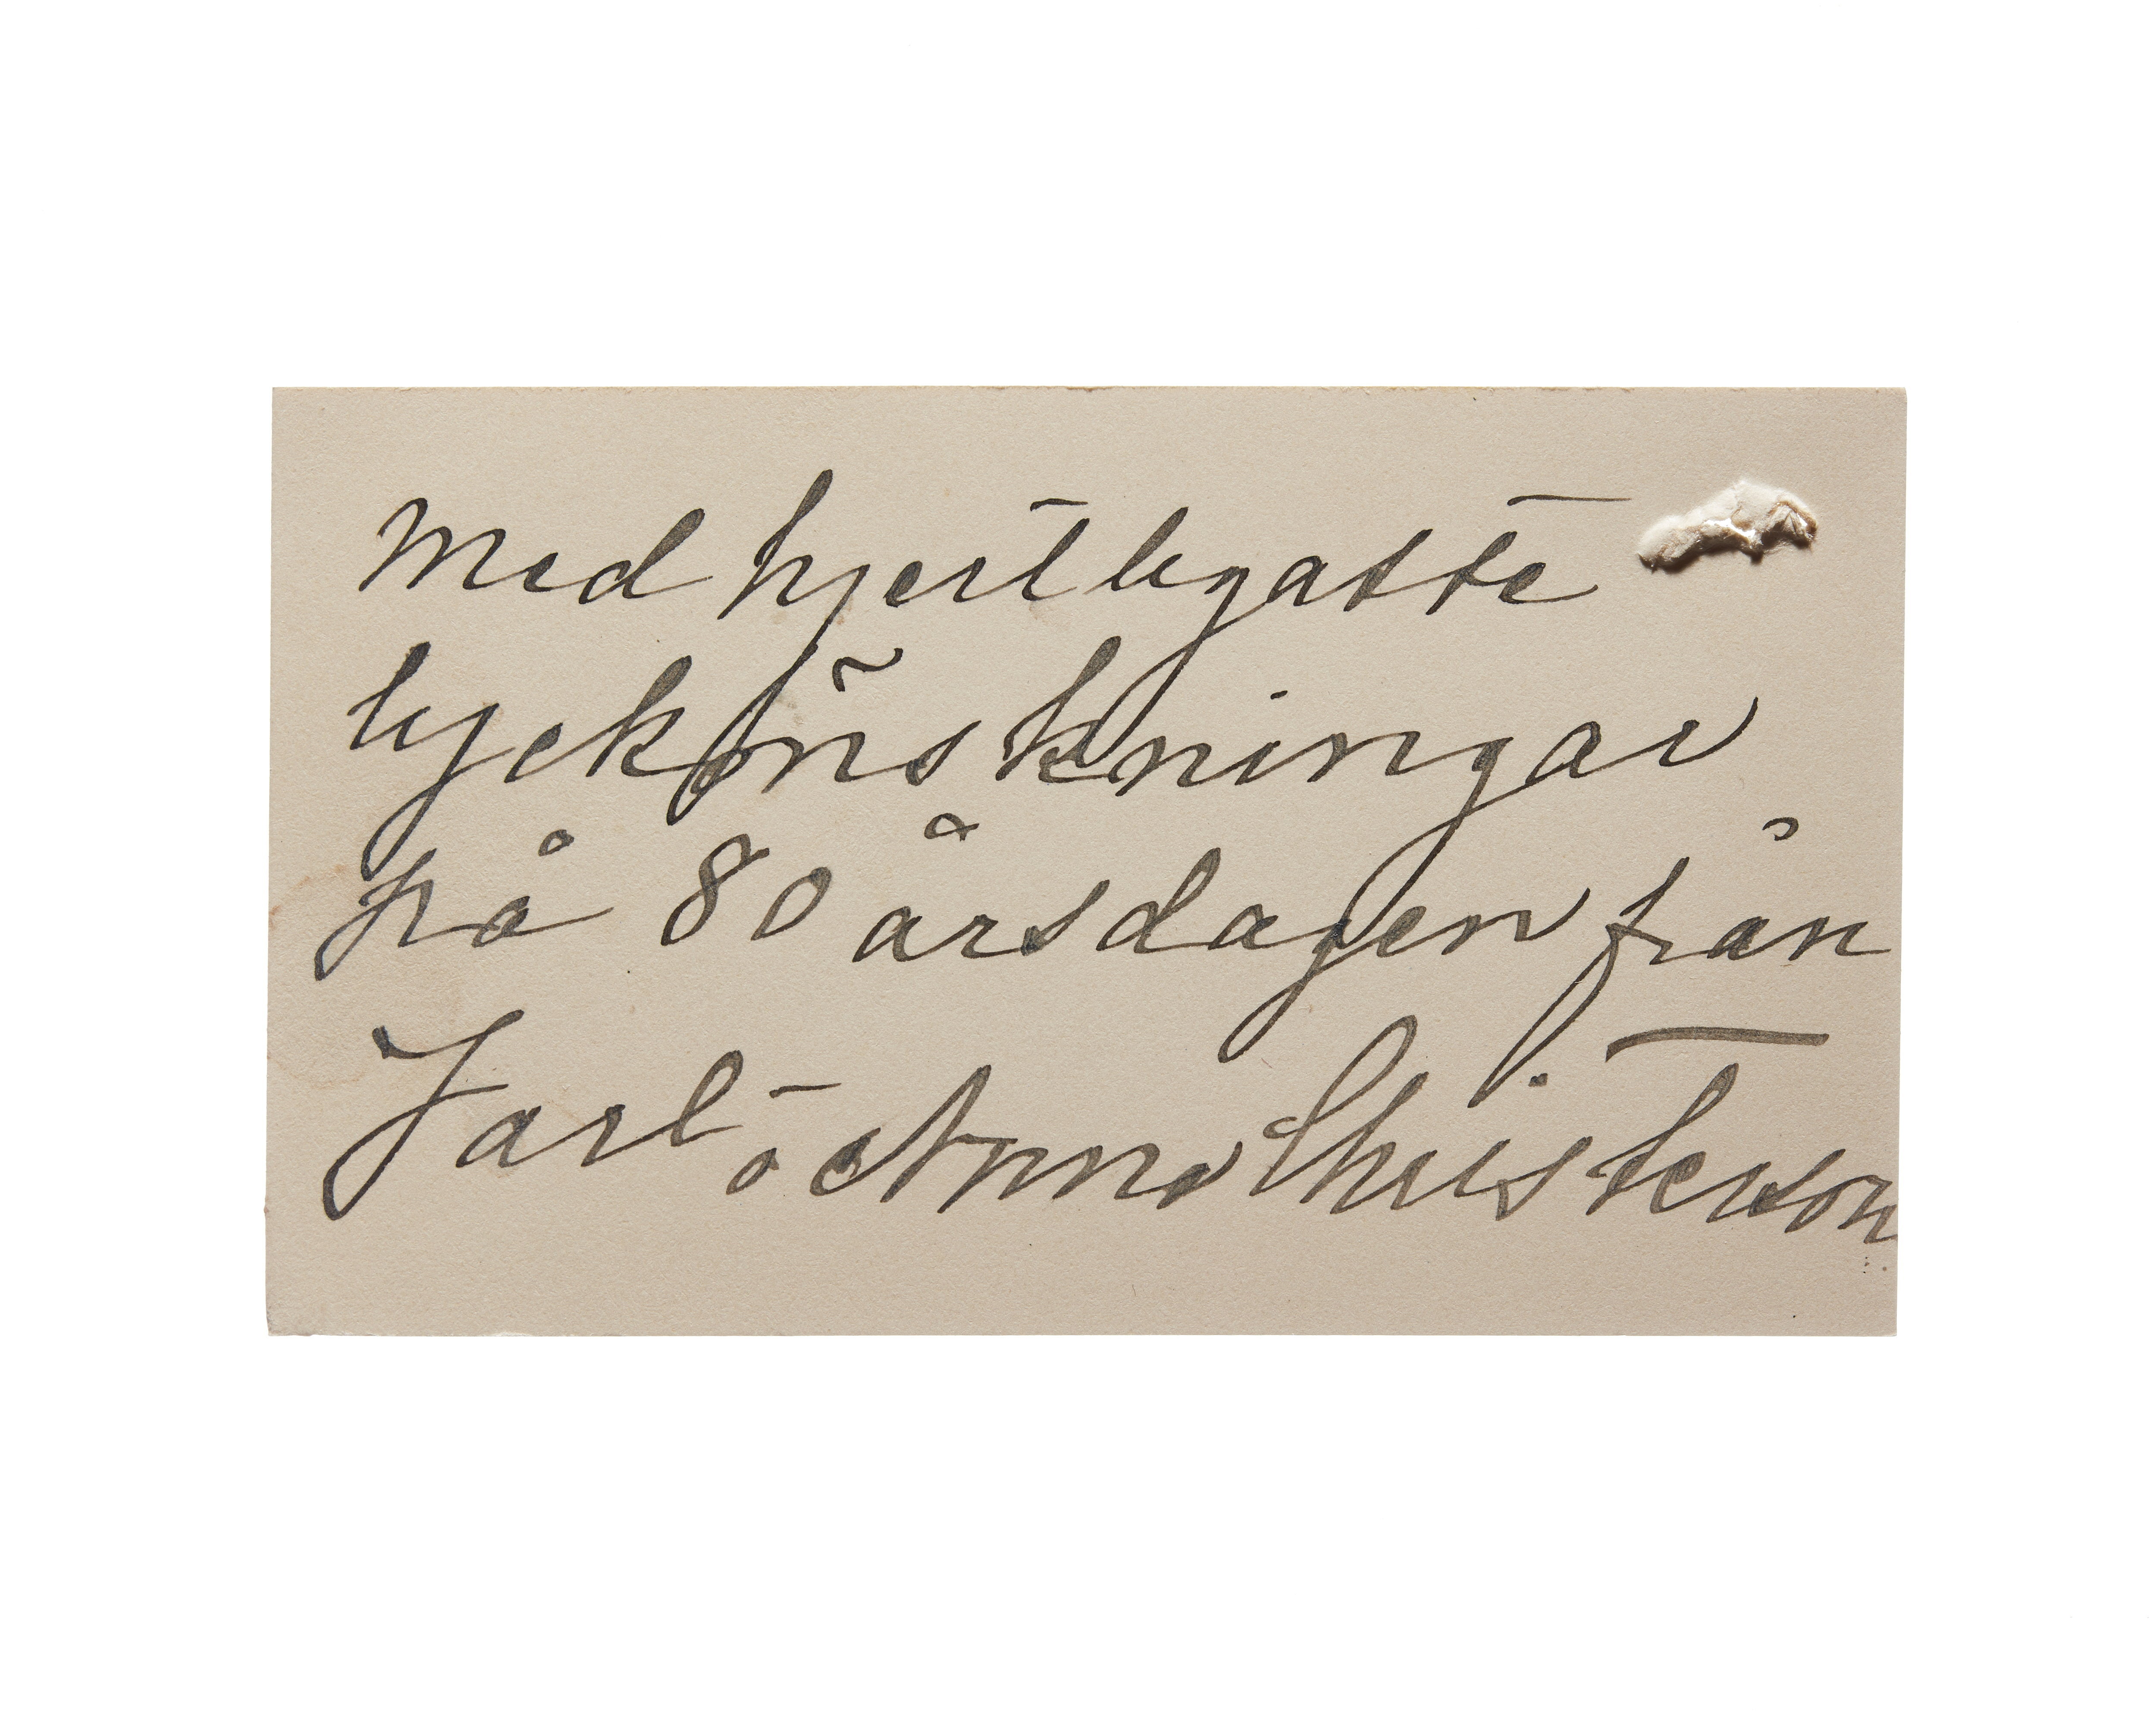 Med hjertligaste
lyckönskningar
på 80 årsdagen från
Jarl o Anna Christerson